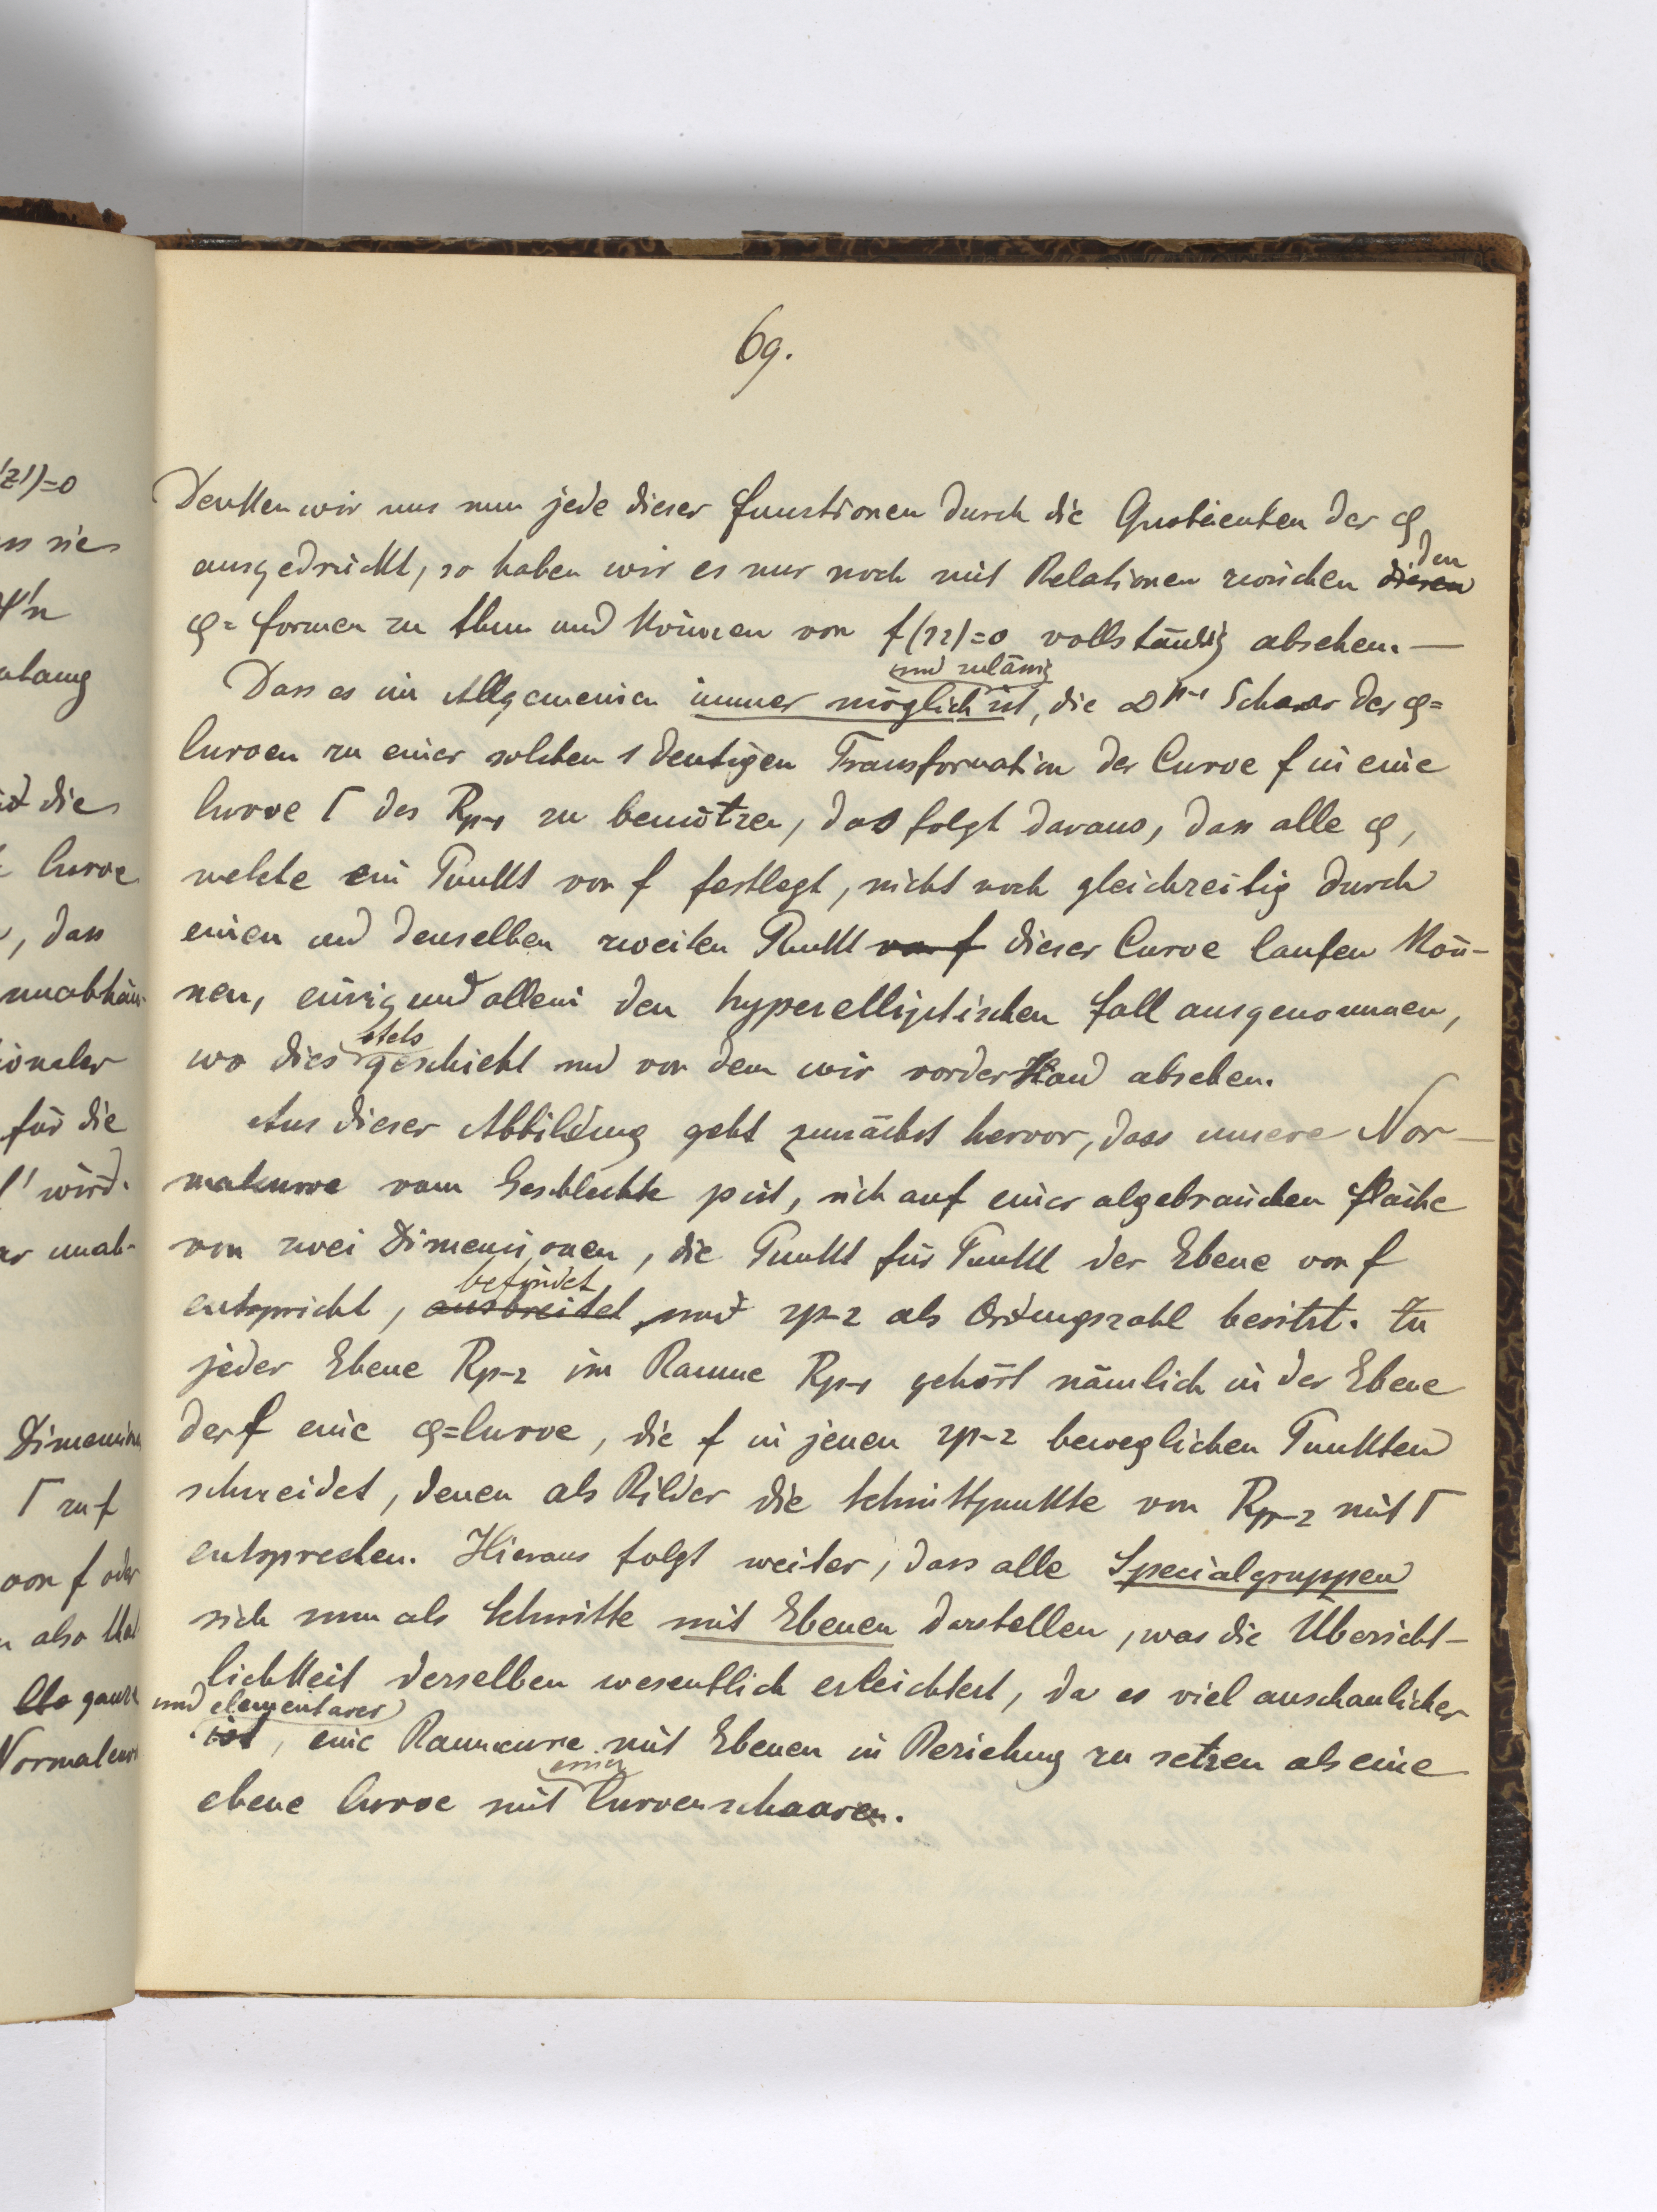 69.
Denken wir uns nun jede dieser Functionen durch die Quotienten der φ
ausgedrückt, so haben wir es nur noch mit Relationen zwischen diesen den
φ= Formen zu thun und können von f(sz)=0 vollständig absehen. —
und zulässig
Dass es im Allgemeinen immer möglich ist, die ∞^{p-1} Schaar der φ=
Curven zu einer solchen 1 deutigen Transformation der Curve f in eine
Curve Γ des R_{p-1} zu benützen, das folgt daraus, dass alle φ,
welche ein Punkt von f festlegt, nicht noch gleichzeitig durch
einen und denselben zweiten Punkt von f dieser Curve laufen kön-
nen, einzig und allein den hyperelliptischen Fall ausgenommen,
stets
wo dies geschieht und von dem wir vorderhand absehen.
Aus dieser Abbildung geht zunächst hervor, dass unsere Nor-
malcurve vom Geschlechte p ist, sich auf einer algebraischen Fläche
von zwei Dimensionen, die Punkt für Punkt der Ebene von f
befindet
entspricht, ausbreitet und 2p-2 als Ordnungszahl besitzt. Zu
jeder Ebene R_{p-2} im Raume R_{p-1} gehört nämlich in der Ebene
der f eine φ=Curve, die f in jenen 2p-2 beweglichen Punkten
schneidet, denen als Bilder die Schnittpunkte von R_{p-2} mit Γ
entsprechen. Hieraus folgt weiter, dass alle Specialgruppen
sich nun als Schnitte mit Ebenen darstellen, was die Übersicht-
lichkeit derselben wesentlich erleichtert, da es viel anschaulicher
und elementarer
ist, eine Raumcurve mit Ebenen in Beziehung zu setzen als eine
ebene Curve mit Curvenschaaren.
z')=0
die
Curve
, dass
unabhän-
für die
Γ' wird.
unab-
Dimension
Γ zu f
von f oder
also
ganze
Normalcurve